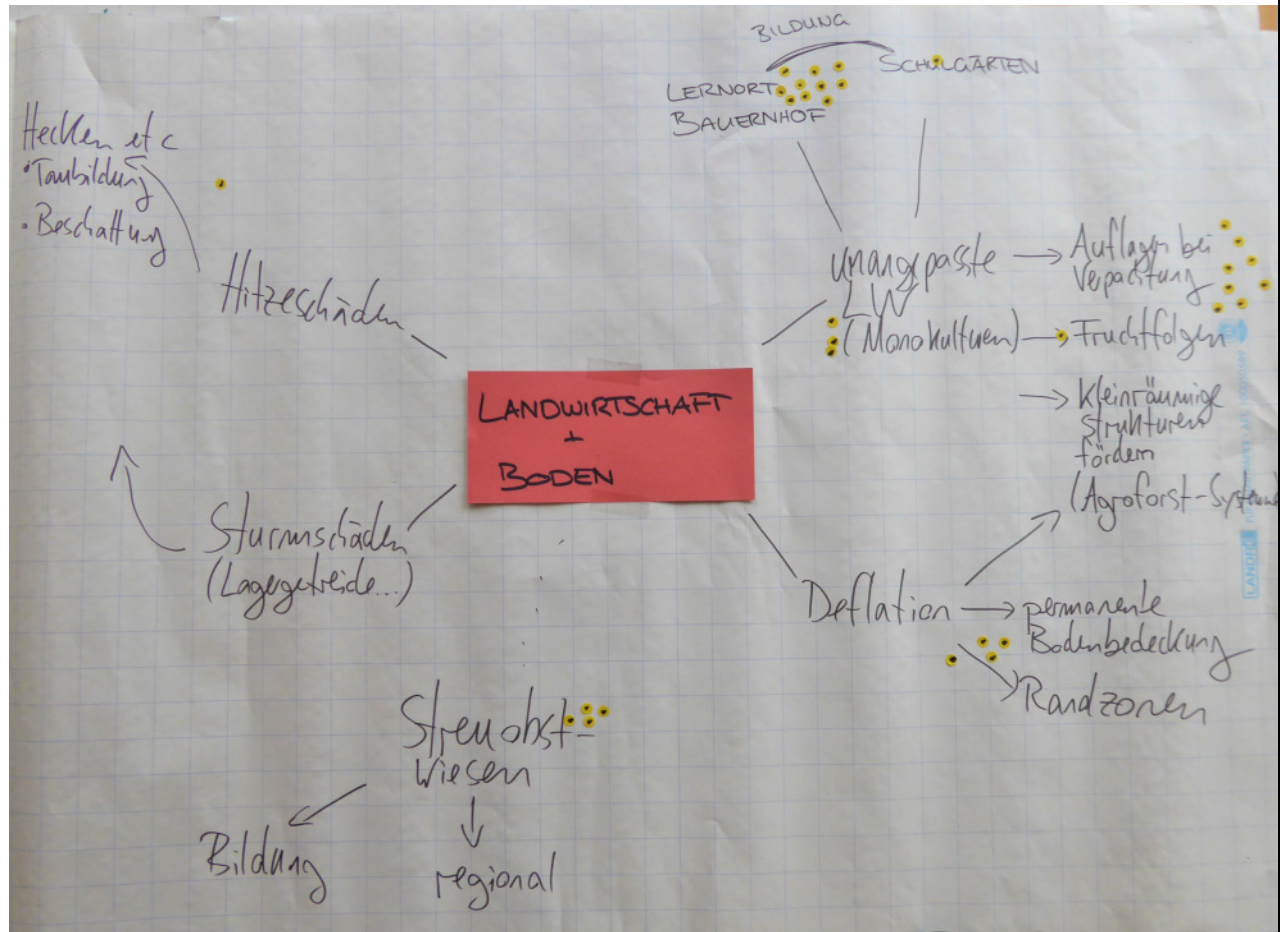 BILDUNG
LERNORT
BAUERNHOF
SCHULGÄRTEN
Hecken etc
• Taubildung
• Beschattung
Hitzeschäden
unangepasste
LW
(Monokulturen)
Auflagen bei
Verpachtung
Fruchtfolgen
kleinräumige
Strukturen
fördern
(Agroforst-Systeme
LANDWIRTSCHAFT
+
BODEN
Sturmschäden
(Lagergetreide...)
Deflation
permanente
Bodenbedeckung
Randzonen
Streuobst-
Wiesen
Bildung
regional